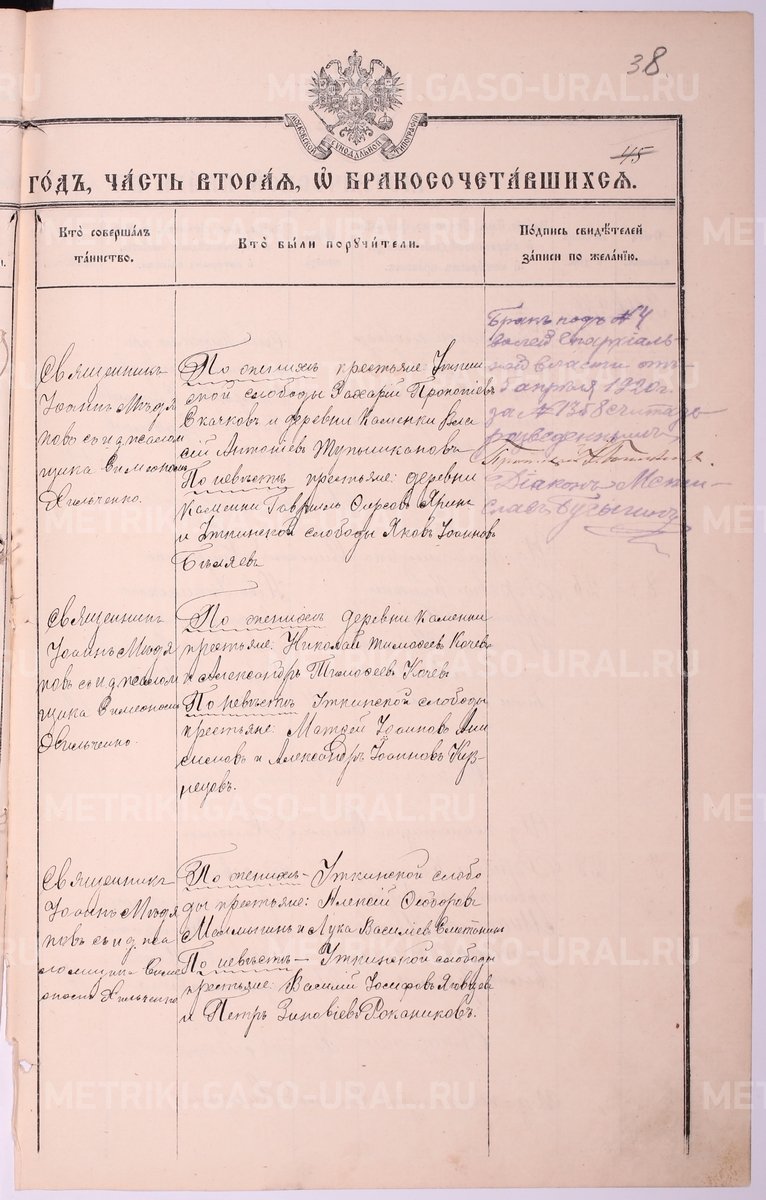 38
МОСКОВСКОЙ СѴНОДАЛЬНОЙ ТИПОГРАФІИ
45
ГО́ДЪ, ЧА́СТЬ ВТОРА́Я, Ѽ БРАКОСОЧЕТА́ВШИХСЯ.
Кто̀ соверша́лъ
та́инство.
Кто̀ бы́ли порꙋчи́тели.
По́дпись свидѣ́телей
за́писи по жела́нію.
Священникъ
Іоаннъ Мѣдя
ковъ съ и. д. псалом
щика Симеономъ
Хильченко.
По женихѣ крестьяне: Уткин
ской слободы Захарій Прокопіевъ
Скачковъ и деревни Каменки Вла
сій Антоніевъ
По невѣстѣ крестьяне: деревни
Каменки Гавріилъ
и Уткинской слободы Яковъ Іоанновъ
Бѣляевъ
Бракъ подъ № 4
Епархіаль-
ной власти отъ
5 апрѣля 1920 г.
за № 1358 считать
разведеннымъ
Діаконъ Мсти-
славъ
Священникъ
Іоаннъ Мѣдя
ковъ съ и. д. псалом
щика Симеономъ
Хильченко.
По женихѣ деревни Каменки
крестьяне: Николай Тимофеевъ Кочевъ
и Александръ Тимофеевъ Кочевъ
По невѣстѣ Уткинской слободы
крестьяне: Матѳей Іоанновъ Ани
симовъ и Александръ Іоанновъ Куз-
нецовъ.
Священникъ
Іоаннъ Мѣдя
ковъ съ и. д. пса
ломщика Симе
ономъ Хильченко
По женихѣ – Уткинской слобо
ды крестьяне: Алексій Ѳеодоровъ
Малмыгинъ и Лука Василіевъ Сметанинъ
По невѣстѣ – Уткинской слободы
крестьяне: Василій Іосифовъ Яговцевъ
и Петръ Зиновіевъ
METRIKI.GASO-URAL.RU